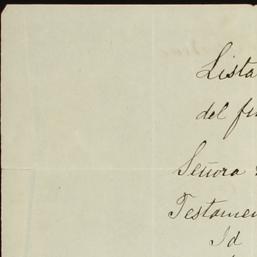 Lista
del
Señora
Testamen
Id